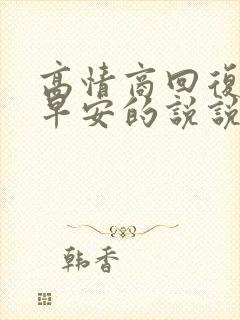 高情商回復
早安的說說
韩香